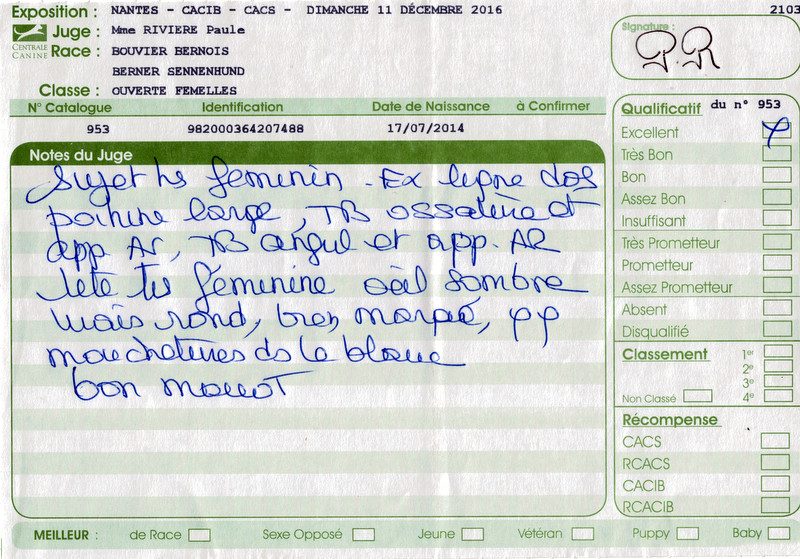 Exposition : NANTES - CACIB - CACS - DIMANCHE 11 DÉCEMBRE 2016 2103
CENTRALE CANINE
Juge : Mme RIVIERE Paule
Race : BOUVIER BERNOIS
BERNER SENNENHUND
Classe : OUVERTE FEMELLES
Signature : P.R
N° Catalogue Identification Date de Naissance à Confirmer
953 982000364207488 17/07/2014
Notes du Juge
Sujet ts féminin - Ex ligne dos
poitrine large, TB ossature et
app AV, TB angul et app. AR
tête ts féminine oeil sombre
mais rond, bien marqué, qq
mouchetures ds le blanc
bon
Qualificatif du n° 953
Excellent
Très Bon
Bon
Assez Bon
Insuffisant
Très Prometteur
Prometteur
Assez Prometteur
Absent
Disqualifié
Classement 1er
2e
3e
Non Classé 4e
Récompense
CACS
RCACS
CACIB
RCACIB
MEILLEUR : de Race Sexe Opposé Jeune Vétéran Puppy Baby